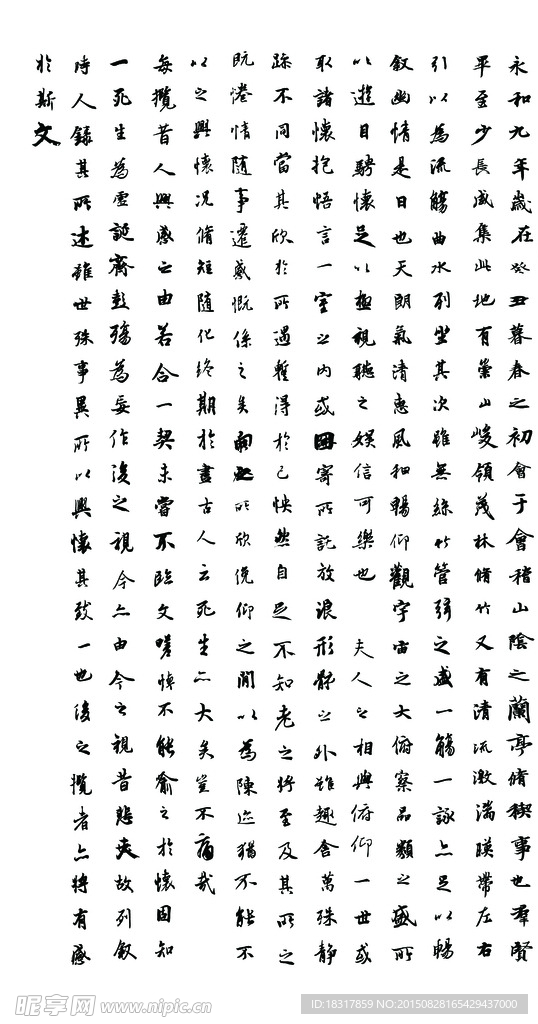 永和九年歲在癸丑暮春之初會于會稽山陰之蘭亭脩稧事也羣賢
畢至少長咸集此地有崇山峻領茂林脩竹又有清流激湍暎帶左右
引以為流觴曲水列坐其次雖無絲竹管弦之盛一觴一詠亦足以暢
叙幽情是日也天朗氣清惠風和暢仰觀宇宙之大俯察品類之盛所
以遊目騁懷足以極視聽之娛信可樂也 夫人之相與俯仰一世或
取諸懷抱悟言一室之內或因寄所託放浪形骸之外雖趣舍萬殊靜
躁不同當其欣於所遇暫得於己怏然自足不知老之將至及其所之
既惓情隨事遷感慨係之矣向之所欣俛仰之閒以為陳迹猶不能不
以之興懷況脩短隨化終期於盡古人云死生亦大矣豈不痛哉
每攬昔人興感之由若合一契未嘗不臨文嗟悼不能喻之於懷固知
一死生為虛誕齊彭殤為妄作後之視今亦由今之視昔悲夫故列叙
時人錄其所述雖世殊事異所以興懷其致一也後之攬者亦將有感
於斯文
昵享网 www.nipic.cn
ID:18317859 NO:20150828165429437000